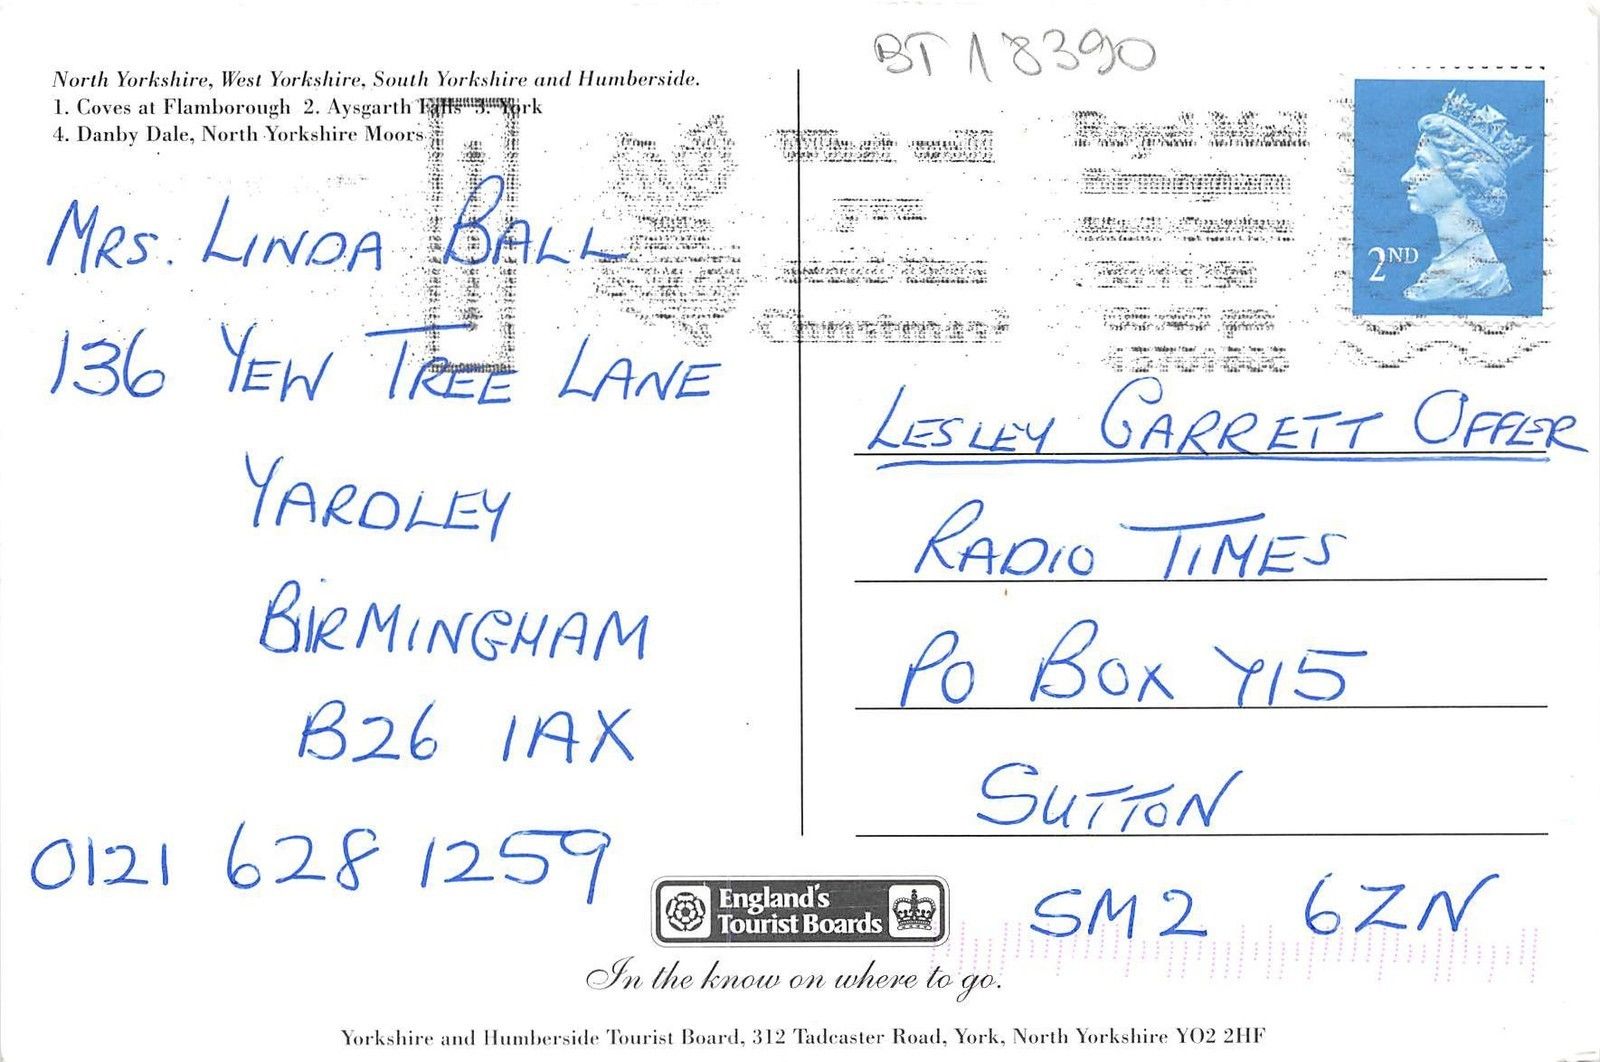 BT 18390
North Yorkshire, West Yorkshire, South Yorkshire and Humberside.
1. Coves at Flamborough 2. Aysgarth Falls 3. York
4. Danby Dale, North Yorkshire Moors
What will
you
Christmas?
Royal Mail
Birmingham
2ND
MRS. LINDA BALL
136 YEW TREE LANE
YARDLEY
BIRMINGHAM
B26 1AX
0121 628 1259
LESLEY GARRETT OFFER
RADIO TIMES
PO BOX Y15
SUTTON
SM2 6ZN
England's
Tourist Boards
In the know on where to go.
Yorkshire and Humberside Tourist Board, 312 Tadcaster Road, York, North Yorkshire YO2 2HF